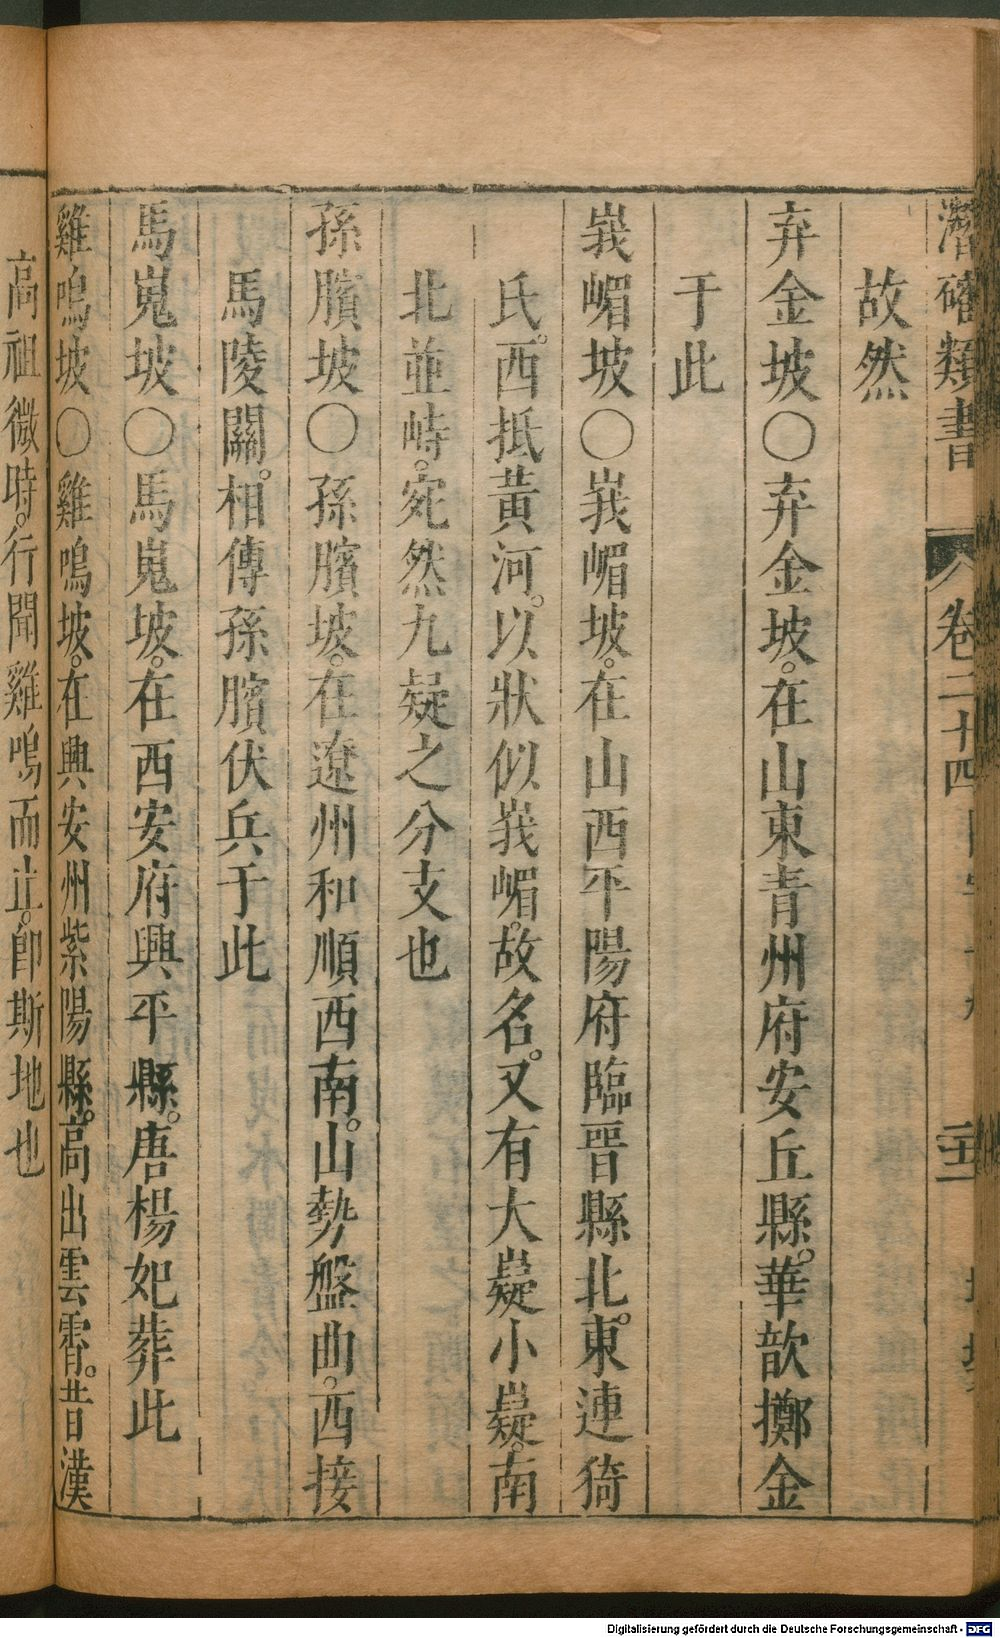 潛確類書 卷二十四
故然
弃金坡〇弃金坡。在山東青州府安丘縣。華歆擲金
于此
峩嵋坡〇峩嵋坡。在山西平陽府臨晋縣北。東連猗
氏。西抵黃河。以狀似峩嵋。故名。又有大嶷小嶷。南
北並峙。宛然九嶷之分支也
孫臏坡〇孫臏坡。在遼州和順西南。山勢盤曲。西接
馬陵關。相傳孫臏伏兵于此
馬嵬坡〇馬嵬坡。在西安府興平縣。唐楊妃葬此
雞鳴坡〇雞鳴坡。在興安州紫陽縣。高出雲霄。昔漢
高祖微時。行聞雞鳴而止。卽斯地也
Digitalisierung gefördert durch die Deutsche Forschungsgemeinschaft - DFG